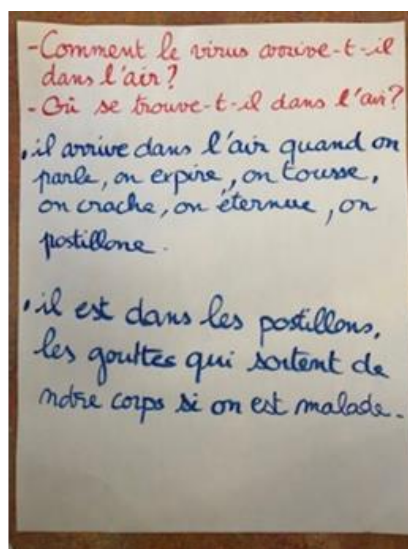 -Comment le virus arrive-t-il
dans l'air?
-Où se trouve-t-il dans l'air?
.il arrive dans l'air quand on
parle, on expire, on tousse,
on crache, on éternue, on
postillone.
.il est dans les postillons,
les gouttes qui sortent de
notre corps si on est malade.